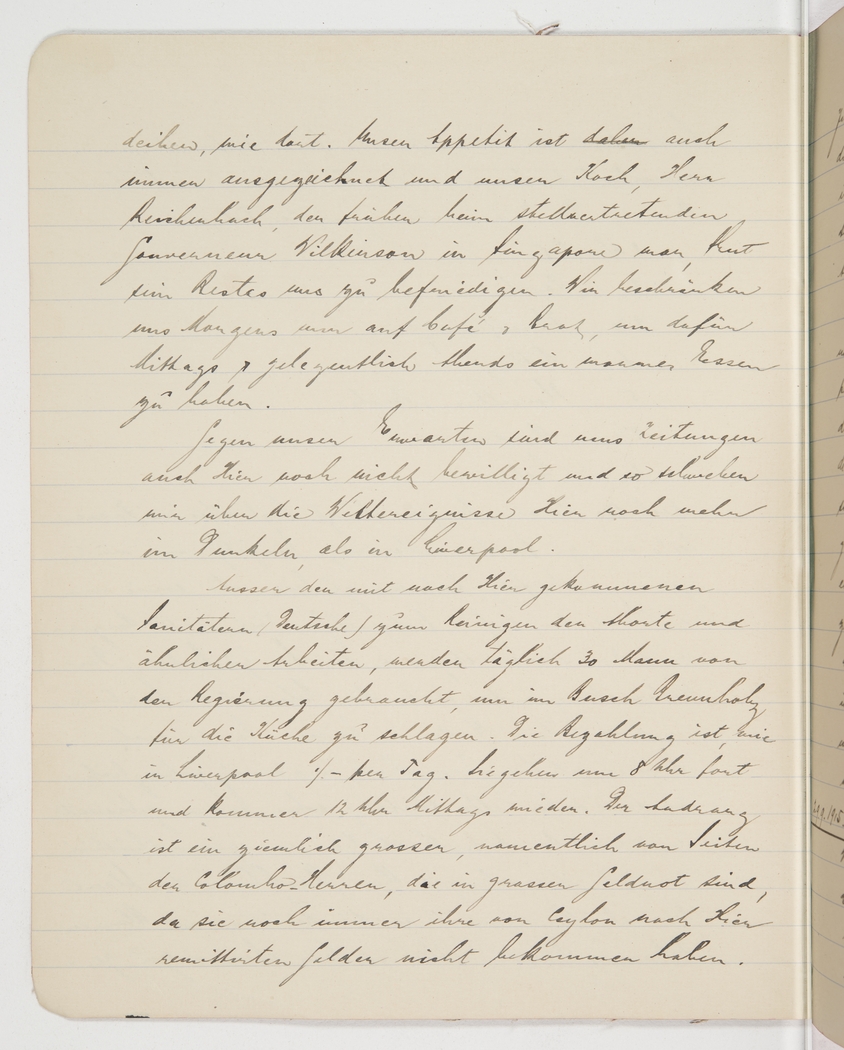 deihen, wie dort. Unser Appetit ist daher auch
immer ausgezeichnet und unser Koch, Herr
Reichenbach, der früher beim stellvertretenden
Gouverneur Wilkinson in Singapore war, tut
sein Bestes uns zu befriedigen. Wir beschränken
uns Morgens nur auf Café & Brot, um dafür
Mittags & gelegentlich Abends ein warmes Essen
zu haben.
Gegen unser Erwarten sind uns Zeitungen
auch Hier noch nicht bewilligt und so schweben
wir über die Weltereignisse Hier noch mehr
im Dunkeln, als in Liverpool.
Ausser den mit nach Hier gekommenen
Sanitätern (Deutsche) zum Reinigen der Aborte und
ähnlichen Arbeiten, werden täglich 30 Mann von
der Regierung gebraucht, um im Busch Brennholz
für die Küche zu schlagen. Die Bezahlung ist, wie
in Liverpool 1/- per Tag. Sie gehen um 8 Uhr fort
und kommen 12 Uhr Mittags wieder. Der Andrang
ist ein ziemlich grosser, namentlich von Seiten
der Colombo-Herren, die in grosser Geldnot sind,
da sie noch immer ihre von Ceylon nach Hier
remittirten Gelder nicht bekommen haben.